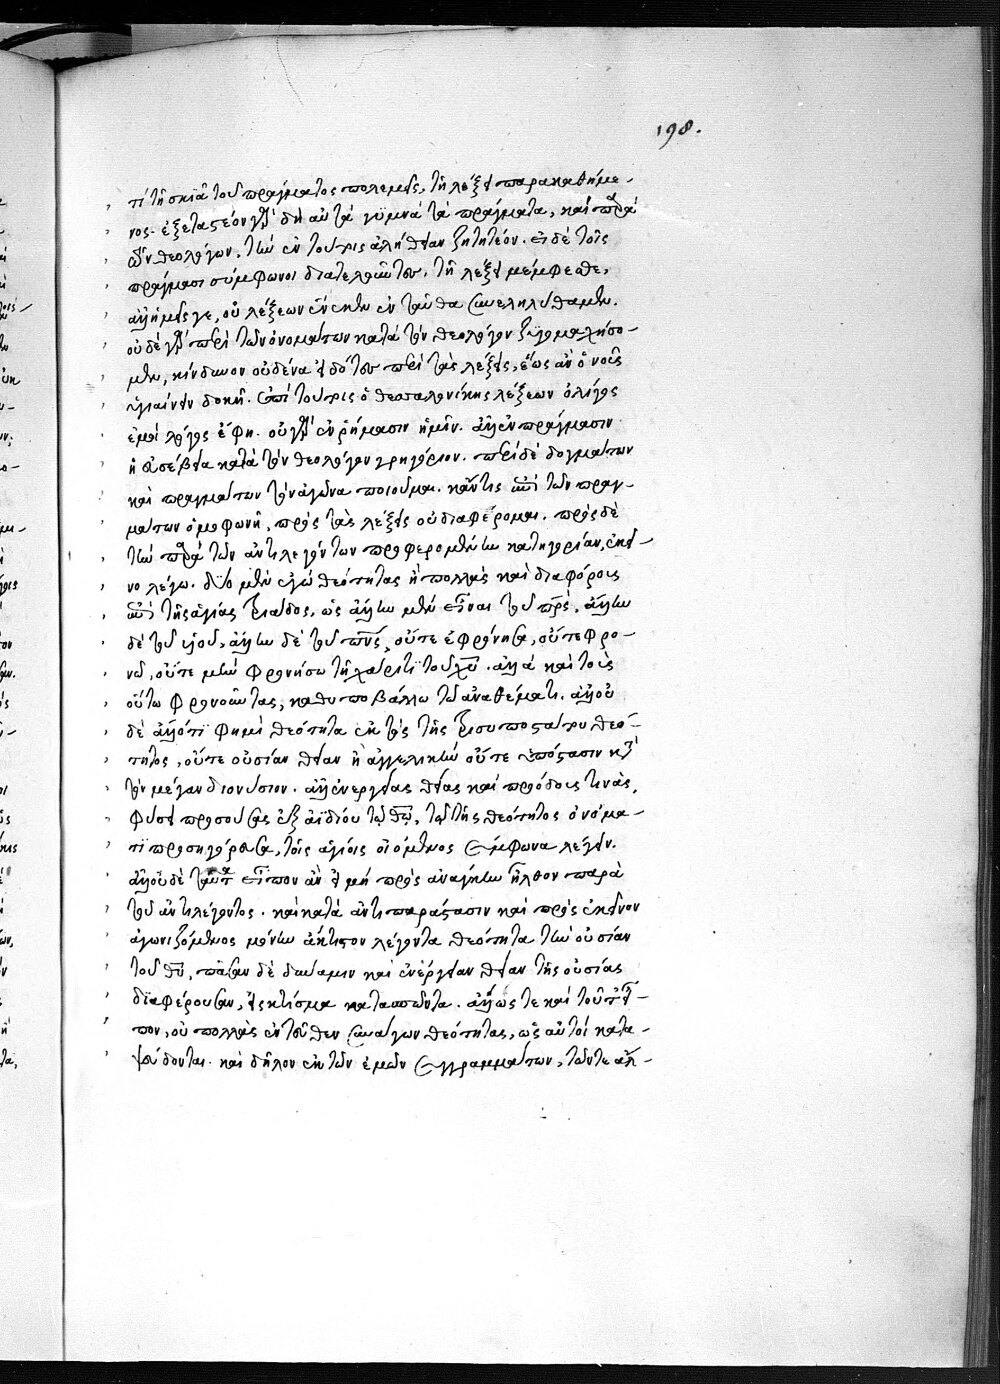 198.
τί τῆ σκιᾶ τοῦ πράγματος πολεμεῖς, τῆ λέξει παρακαθήμε-
νος· ἐξεταστέον γὰρ δὴ αὐτὰ γυμνὰ τὰ πράγματα, καὶ παρὰ
τῶν θεολόγων, τὴν ἐν τούτοις ἀλήθειαν ζητητέον. εἰ δὲ τοῖς
πράγμασι σύμφωνοι διατελοῦντες, τῆ λέξει μέμφεσθε,
ἀλλ' ἡμεῖς γε, οὐ λέξεων ἕνεκεν ἐνταῦθα συνεληλύθαμεν.
οὐδὲ γὰρ περὶ τῶν ὀνομάτων κατὰ τὸν θεολόγον ζυγομαχήσο-
μεν, κίνδυνον οὐδένα εἰδότες περὶ τὰς λέξεις, ἕως ἂν ὁ νοῦς
ὑγιαίνειν δοκῆ. ἐπὶ τούτοις ὁ θεσσαλονίκης λέξεων ὀλίγος
ἐμοὶ λόγος ἔφη. οὐ γὰρ ἐν ῥήμασιν ἡμῖν. ἀλλ' ἐν πράγμασιν
ἡ εὐσέβεια κατὰ τὸν θεολόγον γρηγόριον. περὶ δὲ δογμάτων
καὶ πραγμάτων τὸν ἀγῶνα ποιοῦμαι. κἄν τις ἐπὶ τῶν πραγ-
μάτων ὁμοφωνῆ, πρὸς τὰς λέξεις οὐ διαφέρομαι. πρὸς δὲ
τὴν παρὰ τῶν ἀντιλεγόντων προφερομένην κατηγορίαν, ἐκεῖ-
νο λέγω. δύο μὲν ἐγὼ θεότητας ἢ πολλὰς καὶ διαφόρους
ἐπὶ τῆς ἁγίας τριάδος, ὡς ἄλλην μὲν εἶναι τοῦ πρς, ἄλλην
δὲ τοῦ υἱοῦ, ἄλλην δὲ τοῦ πνς, οὔτε ἐφρόνησα, οὔτε φρο-
νῶ, οὔτε μὴν φρονήσω τῆ χάριτι τοῦ χυ. ἀλλὰ καὶ τοὺς
οὕτω φρονοῦντας, καθυποβάλλω τῶ ἀναθέματι. ἀλλ' οὐ
δὲ ἄλλό τι φημὶ θεότητα ἐκτὸς τῆς τρισυποστάτου θεό-
τητος, οὔτε οὐσίαν θείαν ἢ ἀγγελικὴν οὔτε ὑπόστασιν κατὰ
τὸν μέγαν διονύσιον. ἀλλ' ἐνεργείας θείας καὶ προόδους τινὰς,
φύσει προσούσας ἐξ ἀϊδίου τῶ θω, τῶ τῆς θεότητος ὀνόμα-
τι προσηγόρευσα, τοῖς ἁγίοις οἰόμενος σύμφωνα λέγειν.
ἀλλ' οὐδὲ ταῦτ' εἶπον ἂν εἰ μὴ πρὸς ἀνάγκην ἦλθον παρὰ
τοῦ ἀντιλέγοντος. καὶ κατὰ ἀντιπαράστασιν καὶ πρὸς ἐκεῖνον
ἀγωνιζόμενος μόνην ἄκτιστον λέγοντα θεότητα τὴν οὐσίαν
τοῦ θυ, πᾶσαν δὲ δύναμιν καὶ ἐνέργειαν θείαν τῆς οὐσίας
διαφέρουσαν, εἰς κτίσμα κατασπῶντα. ἄλλως τε καὶ τοῦτ' εἶ-
πον, οὐ πολλὰς ἐντεῦθεν συνάγων θεότητας, ὡς αὐτοὶ κατα-
ψεύδονται. καὶ δῆλον ἐκ τῶν ἐμῶν συγγραμμάτων, τῶν τε ἀπ-